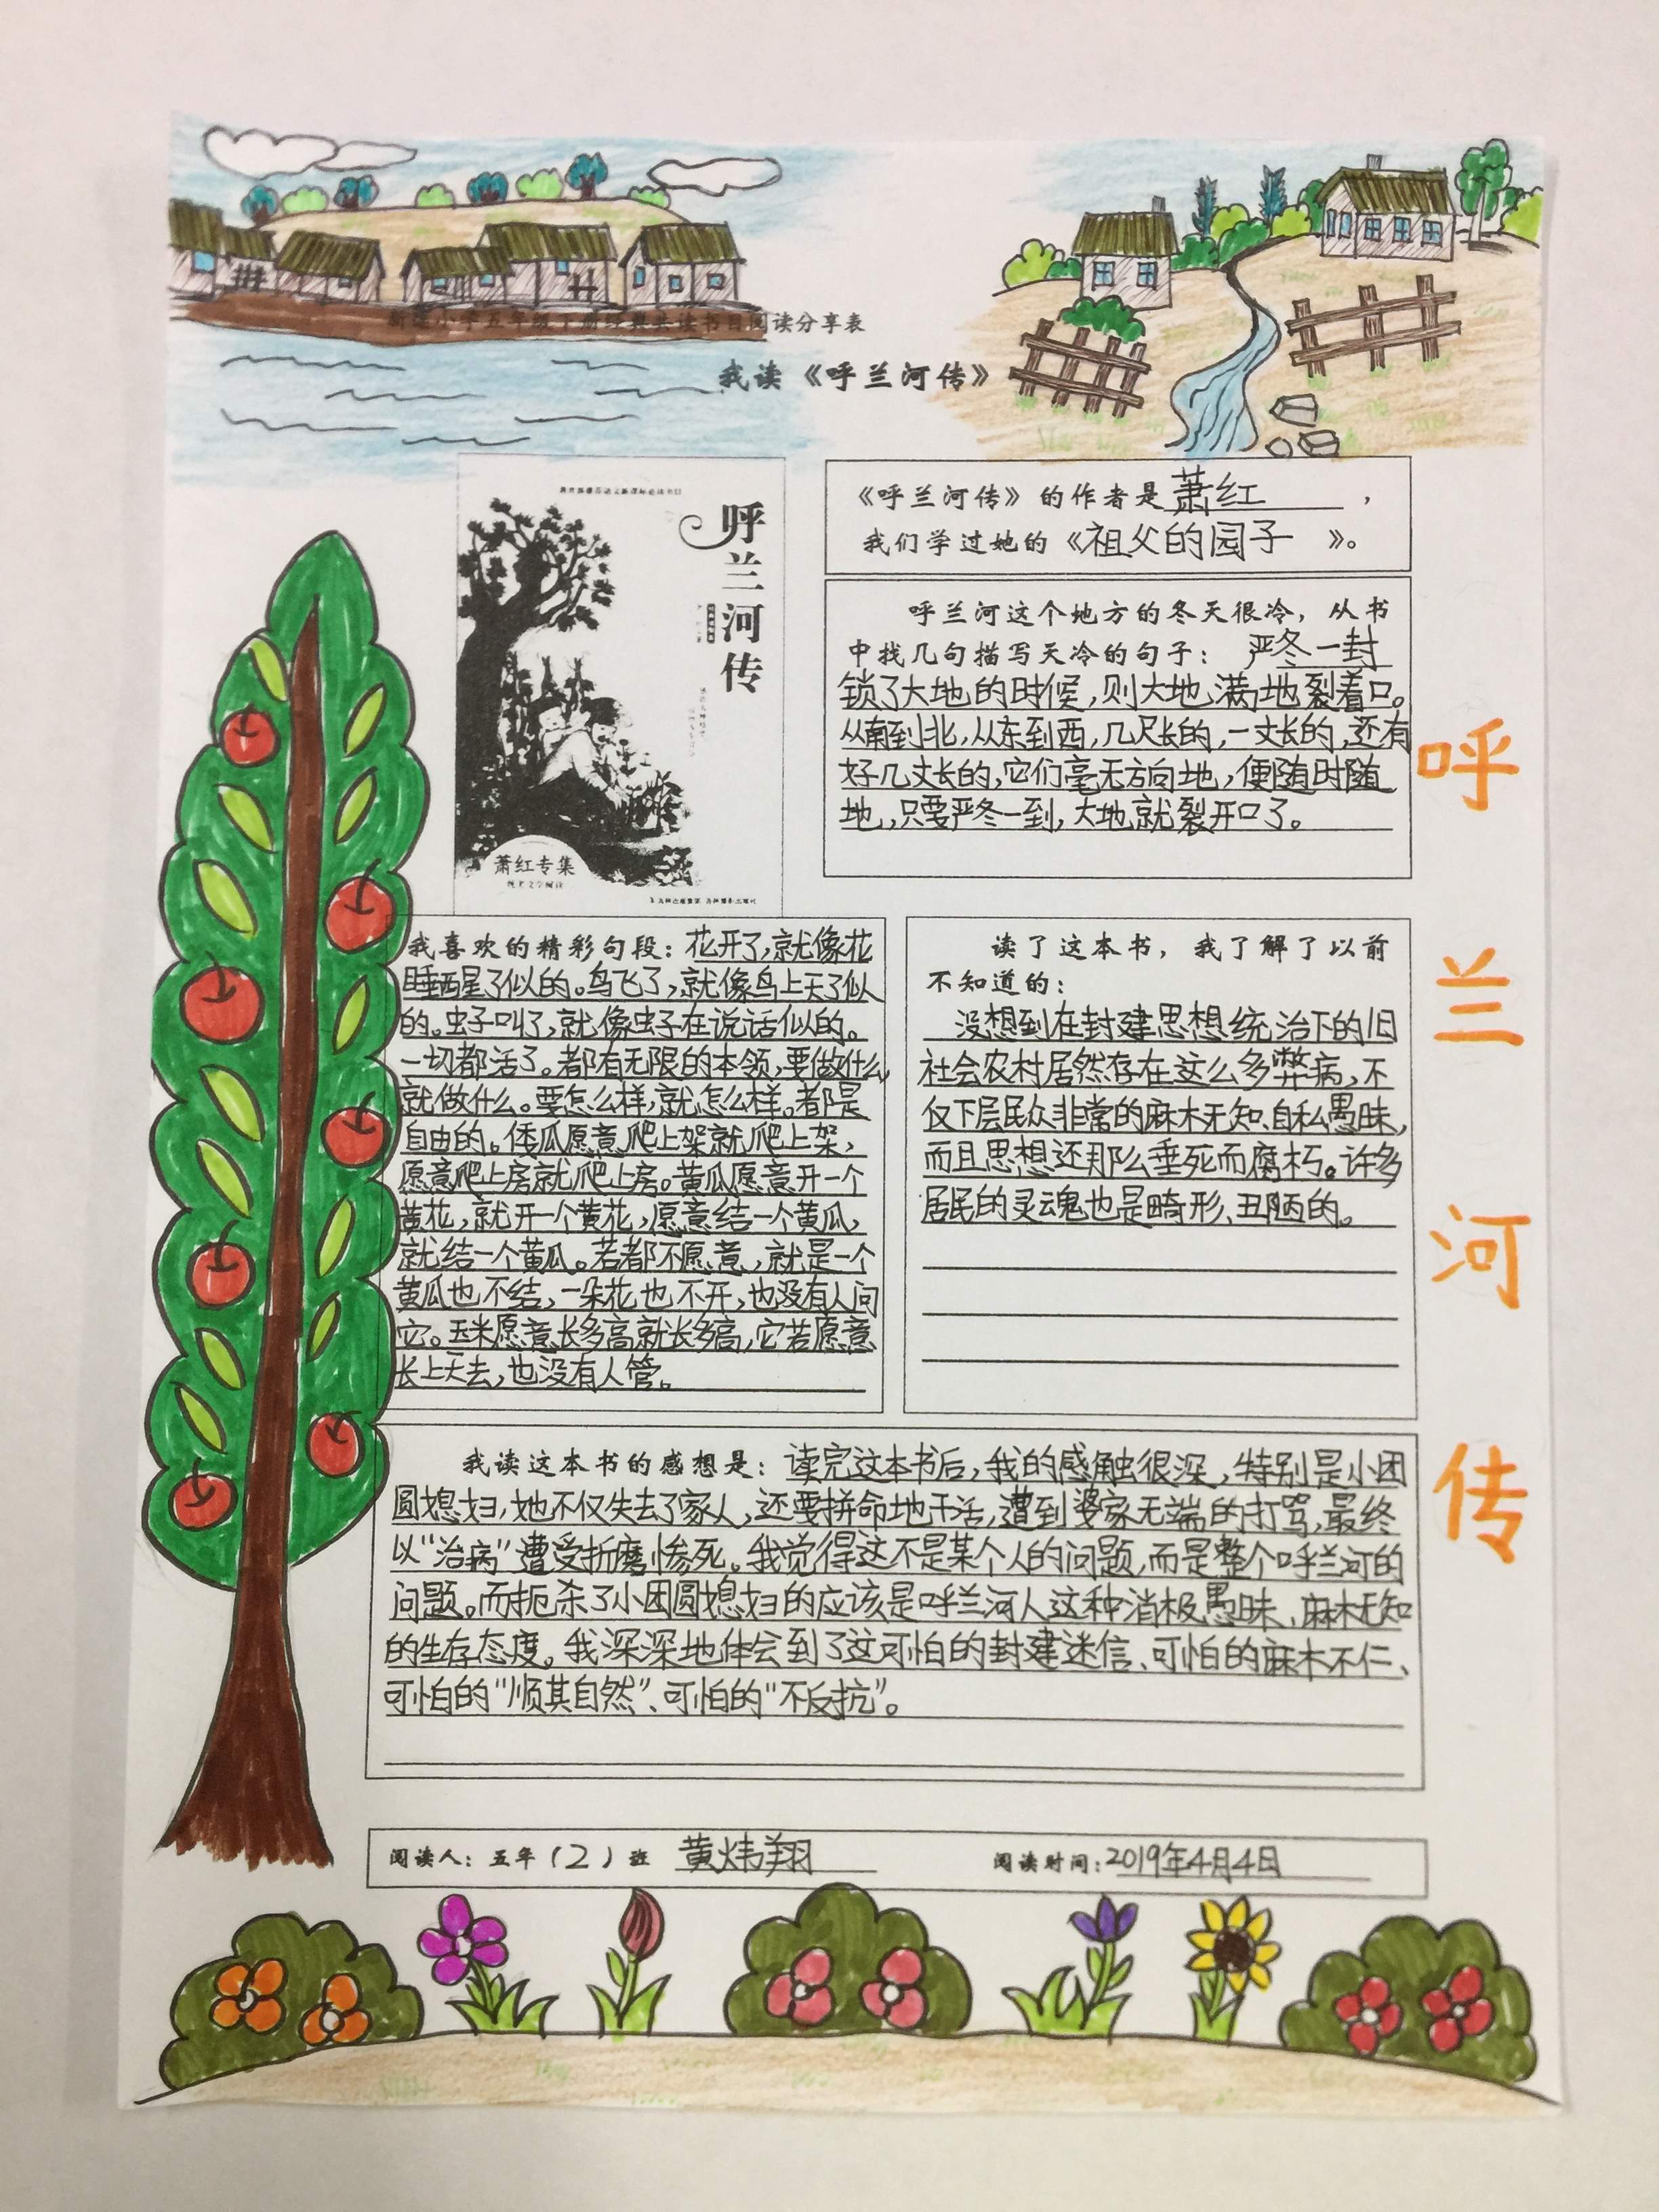 新建小学五年级下册经典共读书目阅读分享表
我读《呼兰河传》
呼兰河传
萧红专集
《呼兰河传》的作者是萧红，
我们学过她的《祖父的园子》。
呼兰河这个地方的冬天很冷，从书
中找几句描写天冷的句子：严冬一封
锁了大地的时候，则大地满地裂着口。
从南到北，从东到西，几尺长的，一丈长的，还有
好几丈长的，它们毫无方向地，便随时随
地，只要严冬一到，大地就裂开口了。
我喜欢的精彩句段：花开了，就像花
睡醒了似的。鸟飞了，就像鸟上天了似
的。虫子叫了，就像虫子在说话似的。
一切都活了。都有无限的本领，要做什么，
就做什么。要怎么样，就怎么样。都是
自由的。倭瓜愿意爬上架就爬上架，
愿意爬上房就爬上房。黄瓜愿意开一个
黄花，就开一个黄花，愿意结一个黄瓜，
就结一个黄瓜。若都不愿意，就是一个
黄瓜也不结，一朵花也不开，也没有人问
它。玉米愿意长多高就长多高，它若愿意
长上天去，也没有人管。
读了这本书，我了解了以前
不知道的：
没想到在封建思想统治下的旧
社会农村居然存在这么多弊病，不
仅下层民众非常的麻木无知、自私愚昧，
而且思想还那么垂死而腐朽。许多
居民的灵魂也是畸形、丑陋的。
我读这本书的感想是：读完这本书后，我的感触很深，特别是小团
圆媳妇，她不仅失去了家人，还要拼命地干活，遭到婆家无端的打骂，最终
以“治病”遭受折磨惨死。我觉得这不是某个人的问题，而是整个呼兰河的
问题。而扼杀了小团圆媳妇的应该是呼兰河人这种消极愚昧、麻木无知
的生存态度。我深深地体会到了这可怕的封建迷信、可怕的麻木不仁、
可怕的“顺其自然”、可怕的“不反抗”。
阅读人：五年（2）班 黄炜翔 阅读时间：2019年4月4日
呼
兰
河
传